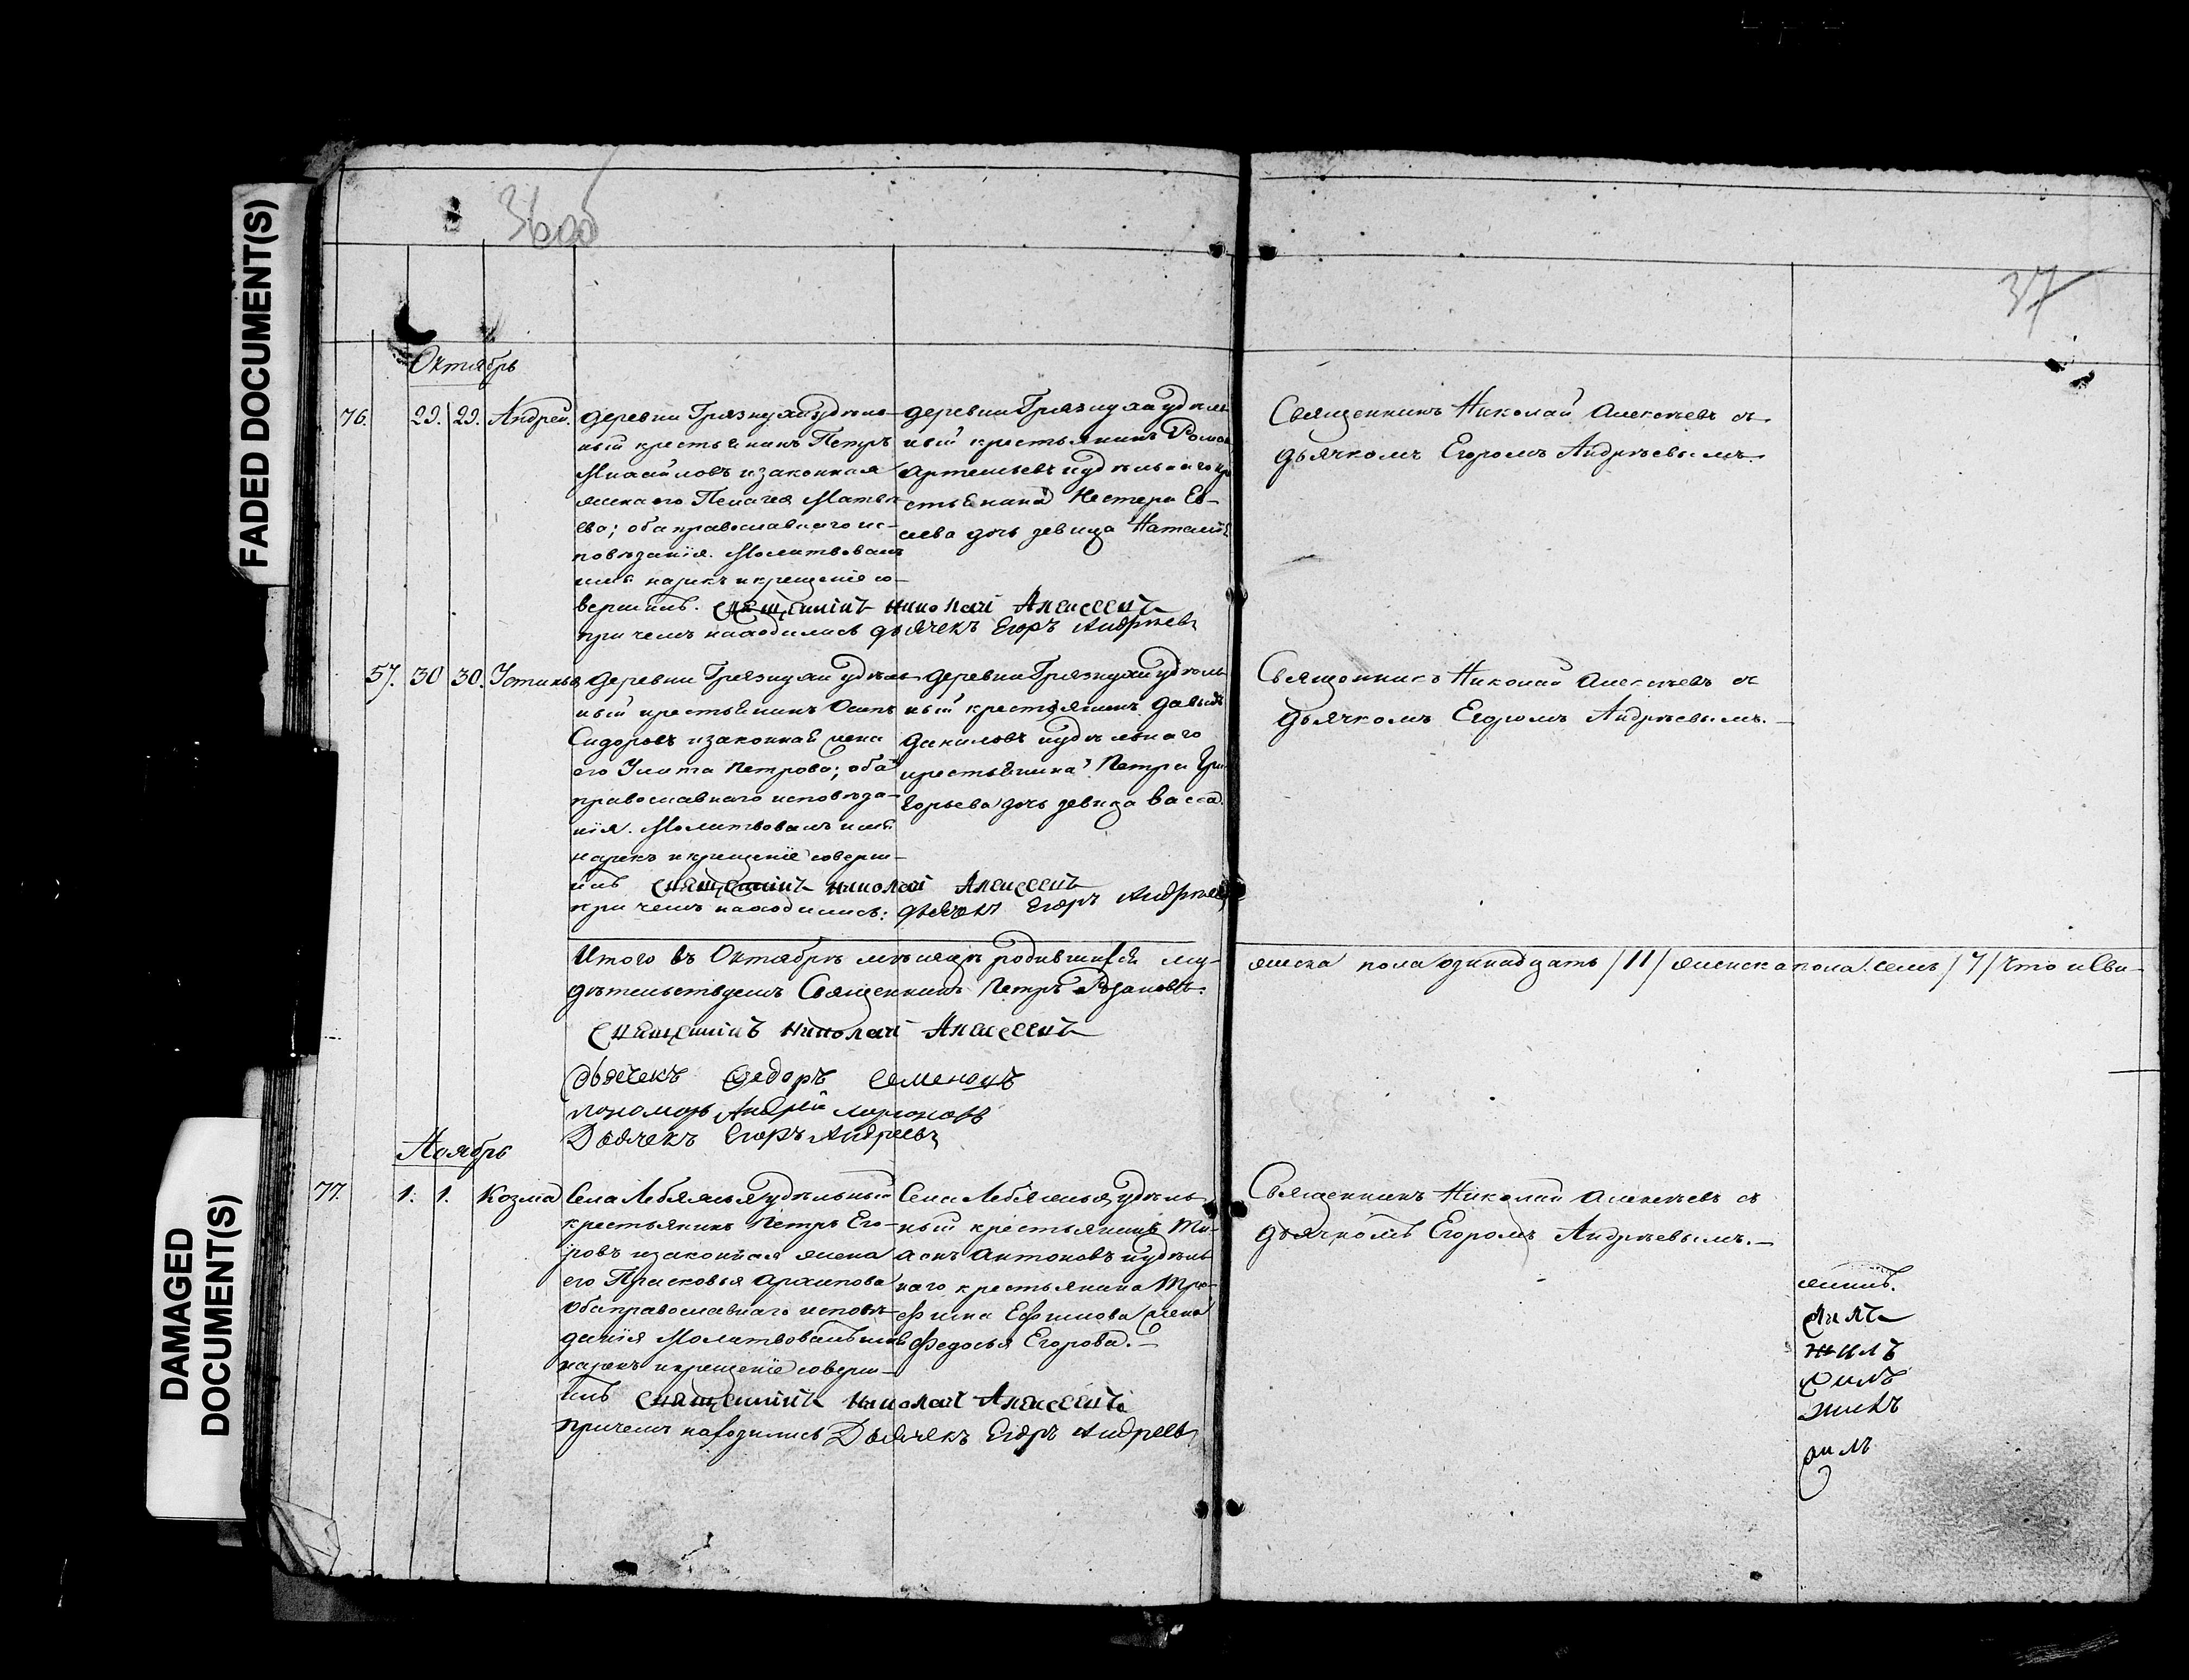 FADED DOCUMENT(S)
DAMAGED
DOCUMENT(S)
36об
37
Октябрь
76. 29. 29. Андрей.
деревни Грязнухи удѣль-
ный крестьянинъ Петръ
Михайловъ и законная
жена его Пелагея Матвѣ-
ева; оба православнаго ис-
повѣданія. Молитвовалъ
имя нарекъ и крещеніе со-
вершилъ. Священникъ Николай Алексеевъ
при чемъ находились дьячекъ Егоръ Андрѣевъ
деревни Грязнухи удѣль-
ный крестьянинъ Романъ
Артемьевъ и удѣльнаго кре-
стьянина Нестера Ев-
сева дочь девица Наталія
Священникъ Николай Алексѣевъ съ
дьячкомъ Егоромъ Андрѣевымъ.
57. 30 30. Устинья
деревни Грязнухи удѣль-
ный крестьянинъ Осипъ
Сидоровъ и законная жена
его Улита Петрова; оба
православнаго исповѣда-
нія. Молитвовалъ имя
нарекъ и крещеніе соверш-
илъ Священникъ Николай Алексеевъ
при чемъ находились: дьячекъ Егоръ Андрѣевъ
деревни Грязнухи удѣль-
ный крестьянинъ Давыдъ
Даниловъ и удѣльнаго
крестьянина Петра Гри-
горьева дочь девица Васса.
Священникъ Николай Алексѣевъ съ
дьячкомъ Егоромъ Андрѣевымъ.
Итого въ Октябрѣ мѣсяцѣ родившихся му-
жеска пола одинадцать /11/ женска пола семь /7/ Что и Сви-
дѣтельствуемъ Священникъ Петръ Розановъ.
Священникъ Николай Алексеевъ
дьячекъ Федоръ Семеновъ
пономарь Андрей Ларионовъ
Дьячекъ Егоръ Андреевъ
Ноябрь
77. 1. 1. Козма
Села Лебяжья удѣльный
крестьянинъ Петръ Его-
ровъ и законная жена
его Прасковья Архипова
оба православнаго исповѣ-
данія Молитвовалъ имя
нарекъ и крещеніе соверш-
илъ Священникъ Николай Алексеевъ
при чемъ находились Дьячекъ Егоръ Андреевъ
Села Лебяжья удѣль-
ный крестьянинъ Ти-
хонъ Антоновъ и удѣль-
наго крестьянина Тро-
фима Ефимова жена
Федосья Егорова.
Священникъ Николай Алексѣевъ съ
дьячкомъ Егоромъ Андрѣевымъ.